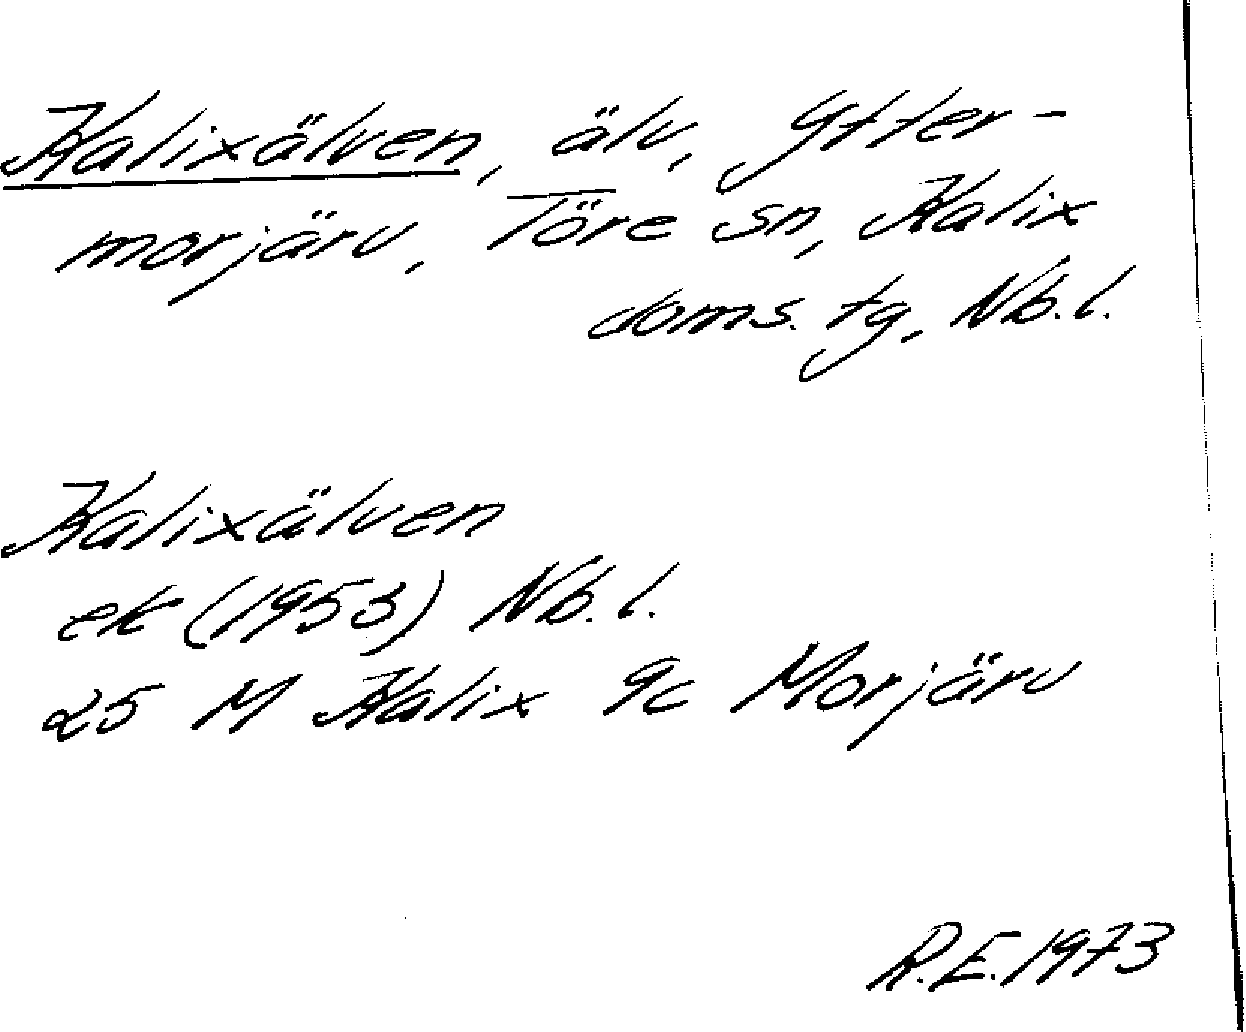 Kalixälven, älv, Ytter-
morjärv, Töre sn, Kalix
doms. tg, Nb.l.
Kalixälven
ek (1953) Nb.l.
25 M Kalix 9c Morjärv
R.E. 1973